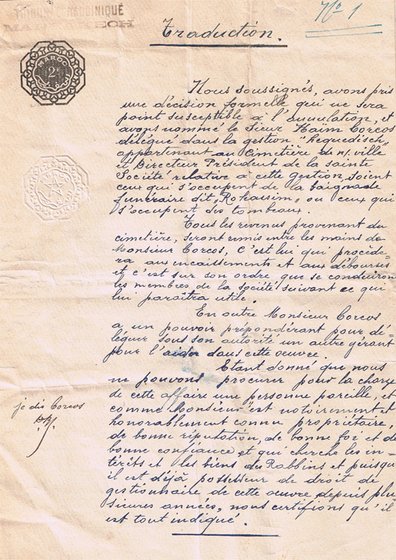 TRIBUNAL RABBINIQUE
MARRAKECH
Nº 1
Traduction.
MAROC
2
Nous soussignés, avons pris
une décision formelle qui ne sera
point susceptible à l'annulation, et
avons nommé le Sieur Haïm Corcos
délégué dans la gestion "Hequedisch,
appartenant au Cimetière de n/ ville
et Directeur Président de la sainte
Société relative à cette gestion, soient
ceux qui s'occupent de la baignade
funéraire dit, Rohassim, ou ceux qui
s'occupent des tombeaux.
Tous les revenus provenant du
cimetière, seront remis entre les mains de
Monsieur Corcos, C'est lui qui procéde-
ra aux encaissements et aux débourses
et c'est sur son ordre que se conduiront
les membres de la société suivant ce qui
lui paraîtra utile.
En outre Monsieur Corcos
a un pouvoir prépondérant pour dé-
léguer sous son autorité un autre gérant
pour l'aider dans cette oeuvre.
Etant donné que nous
ne pouvons procurer pour la charge
de cette affaire une personne pareille, et
comme Monsieur est notoirement et
honorablement connu propriétaire,
de bonne réputation, de bonne foi et de
bonne confiance, et qui cherche les in-
térêts et les biens des Rabbins et puisqu'
il est déjà possesseur de droit de
gestionnaire de cette oeuvre depuis plu-
sieures années, nous certifions qu'il
est tout indiqué.
je dis Corcos